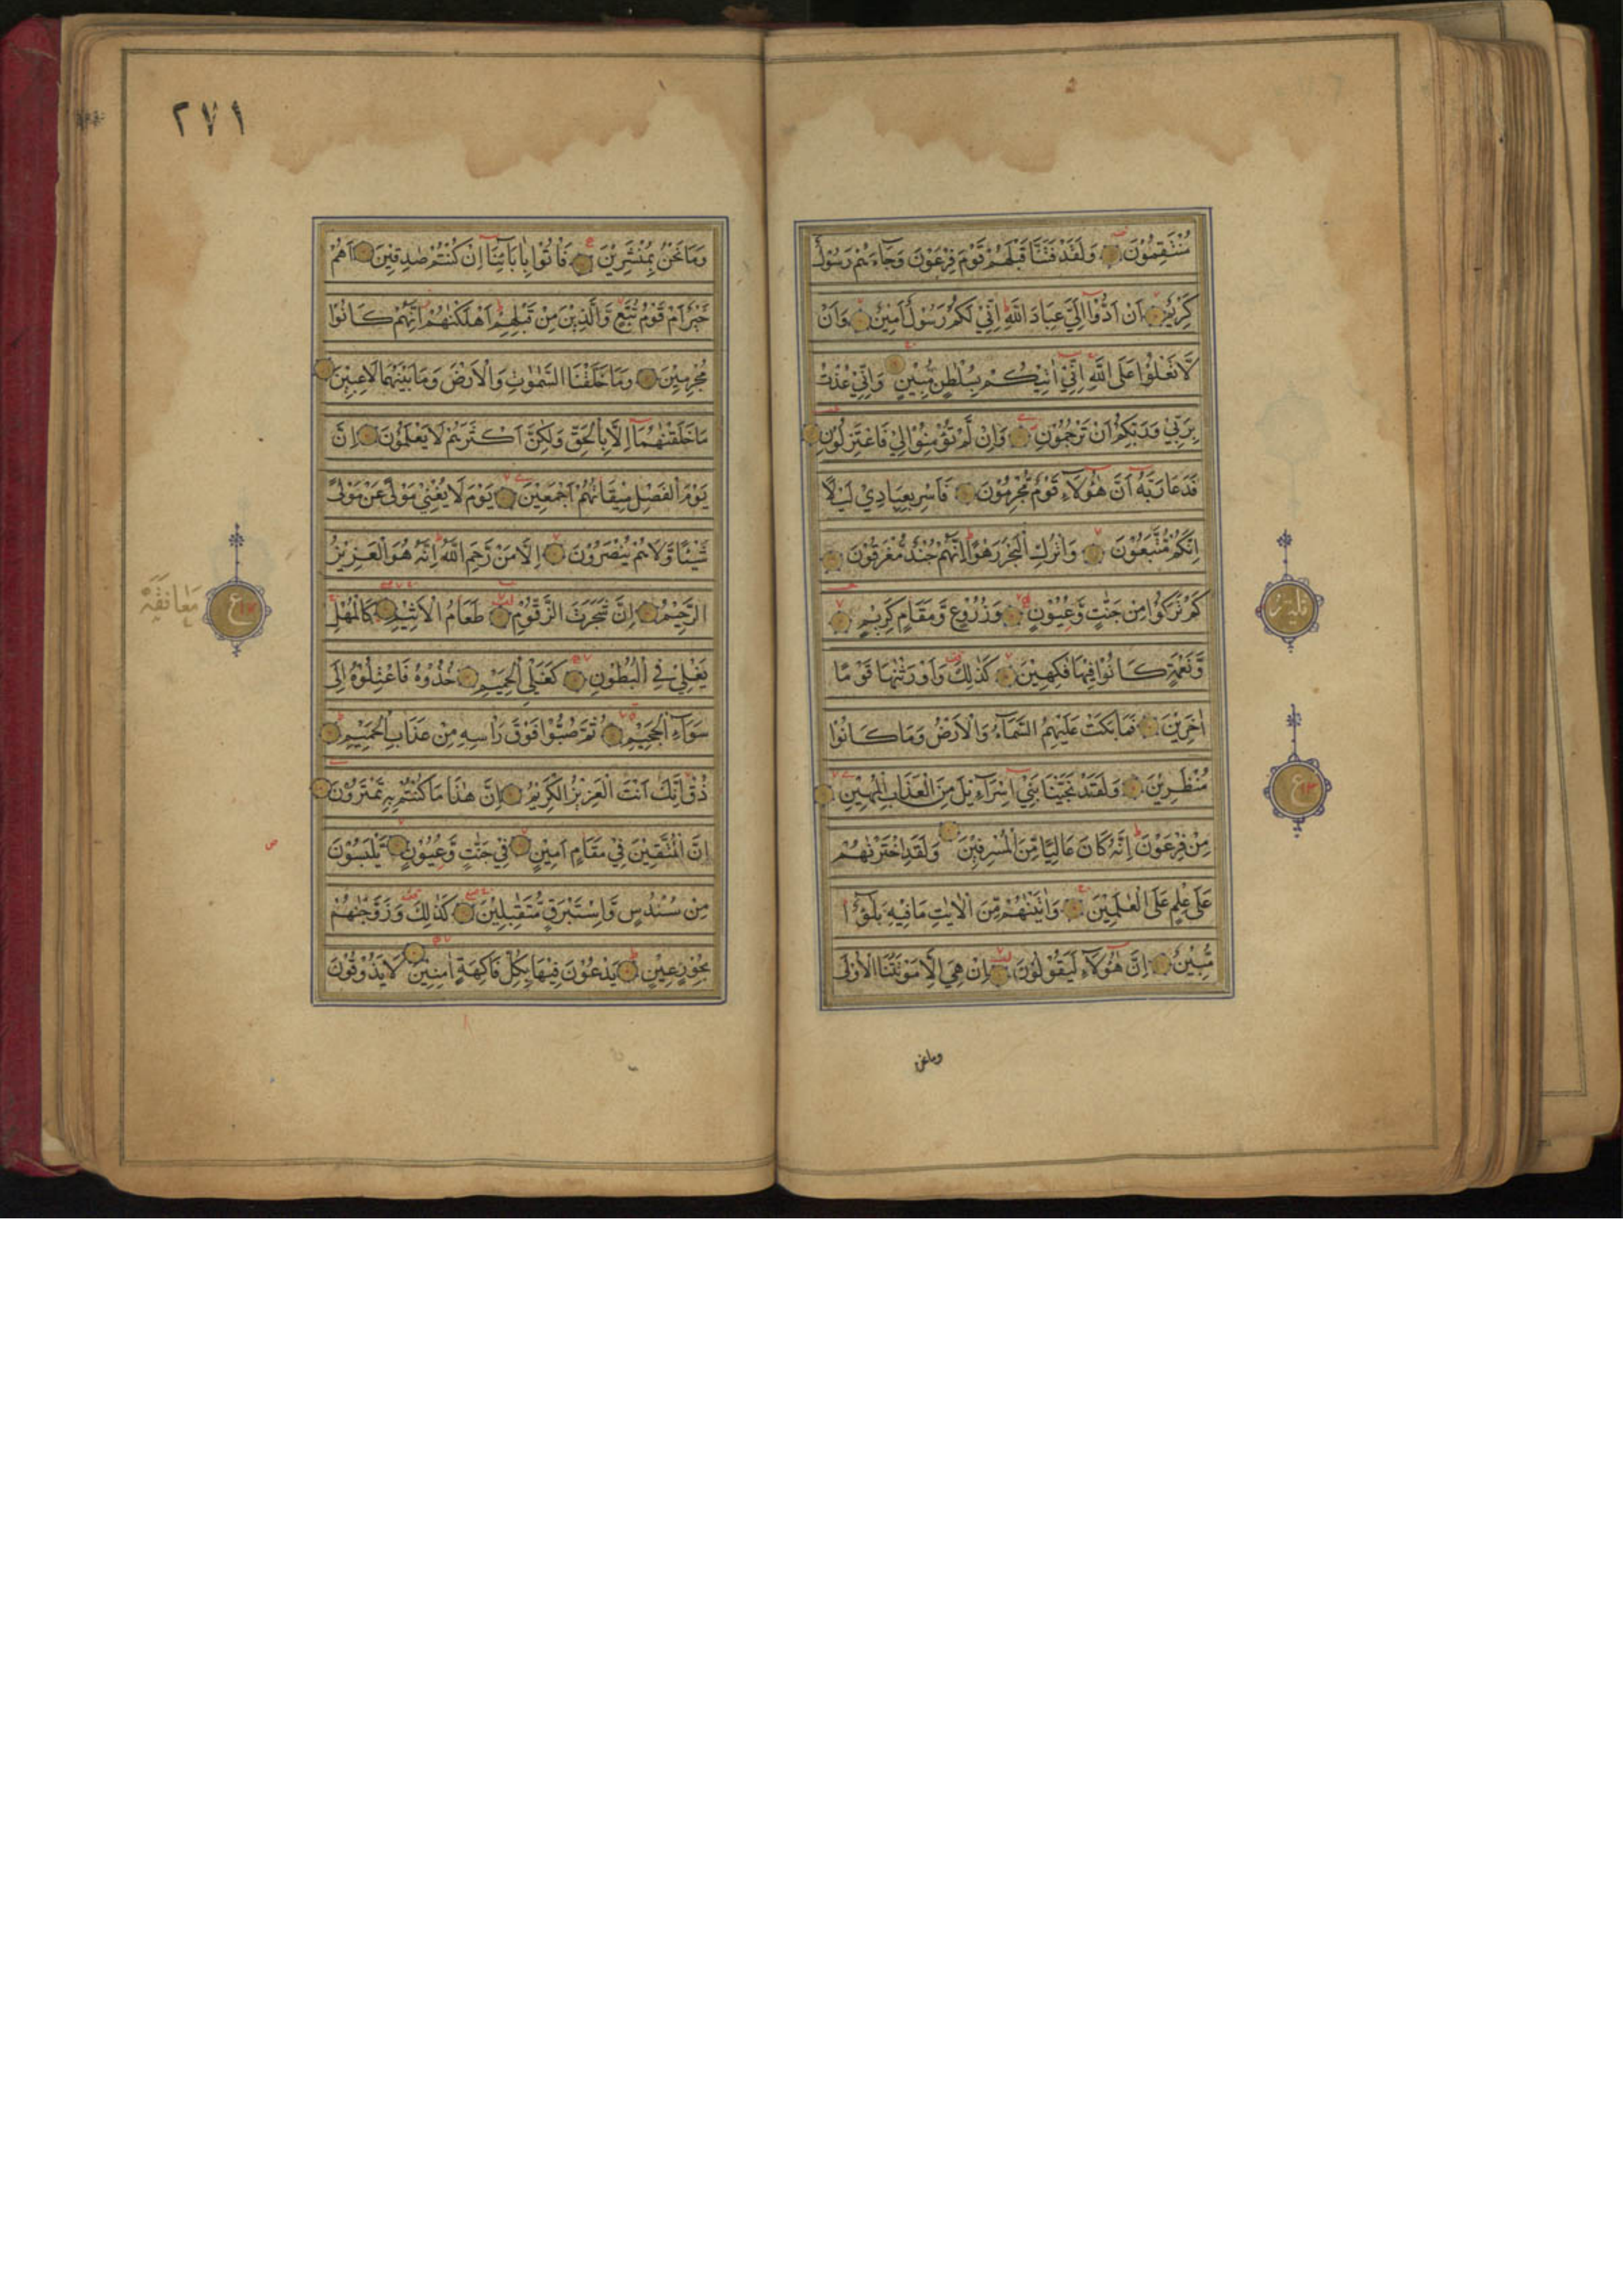 مُنْتَقِمُوْنَ وَلَقَدْ فَتَنَّا قَبْلَهُمْ قَوْمَ فِرْعَوْنَ وَجَآءَهُمْ رَسُوْلٌ
كَرِيْمٌ اَنْ اَدُّوْٓا اِلَيَّ عِبَادَ اللّٰهِ اِنِّيْ لَكُمْ رَسُوْلٌ اَمِيْنٌ وَاَنْ
لَّا تَعْلُوْا عَلَى اللّٰهِ اِنِّيْٓ اٰتِيْكُمْ بِسُلْطٰنٍ مُّبِيْنٍ وَاِنِّيْ عُذْتُ
بِرَبِّيْ وَرَبِّكُمْ اَنْ تَرْجُمُوْنِ وَاِنْ لَّمْ تُؤْمِنُوْا لِيْ فَاعْتَزِلُوْنِ
فَدَعَا رَبَّهٗٓ اَنَّ هٰٓؤُلَآءِ قَوْمٌ مُّجْرِمُوْنَ فَاَسْرِ بِعِبَادِيْ لَيْلًا
اِنَّكُمْ مُّتَّبَعُوْنَ وَاتْرُكِ الْبَحْرَ رَهْوًا اِنَّهُمْ جُنْدٌ مُّغْرَقُوْنَ
كَمْ تَرَكُوْا مِنْ جَنّٰتٍ وَّعُيُوْنٍ وَزُرُوْعٍ وَّمَقَامٍ كَرِيْمٍ
وَّنَعْمَةٍ كَانُوْا فِيْهَا فٰكِهِيْنَ كَذٰلِكَ وَاَوْرَثْنٰهَا قَوْمًا
اٰخَرِيْنَ فَمَا بَكَتْ عَلَيْهِمُ السَّمَآءُ وَالْاَرْضُ وَمَا كَانُوْا
مُنْظَرِيْنَ وَلَقَدْ نَجَّيْنَا بَنِيْٓ اِسْرَآءِيْلَ مِنَ الْعَذَابِ الْمُهِيْنِ
مِنْ فِرْعَوْنَ اِنَّهٗ كَانَ عَالِيًا مِّنَ الْمُسْرِفِيْنَ وَلَقَدِ اخْتَرْنٰهُمْ
عَلٰى عِلْمٍ عَلَى الْعٰلَمِيْنَ وَاٰتَيْنٰهُمْ مِّنَ الْاٰيٰتِ مَا فِيْهِ بَلٰٓؤٌا
مُّبِيْنٌ اِنَّ هٰٓؤُلَآءِ لَيَقُوْلُوْنَ اِنْ هِيَ اِلَّا مَوْتَتُنَا الْاُوْلٰى
ومانحن
ع
٢٧١
وَمَا نَحْنُ بِمُنْشَرِيْنَ فَاْتُوْا بِاٰبَآئِنَآ اِنْ كُنْتُمْ صٰدِقِيْنَ اَهُمْ
خَيْرٌ اَمْ قَوْمُ تُبَّعٍ وَّالَّذِيْنَ مِنْ قَبْلِهِمْ اَهْلَكْنٰهُمْ اِنَّهُمْ كَانُوْا
مُجْرِمِيْنَ وَمَا خَلَقْنَا السَّمٰوٰتِ وَالْاَرْضَ وَمَا بَيْنَهُمَا لٰعِبِيْنَ
مَا خَلَقْنٰهُمَآ اِلَّا بِالْحَقِّ وَلٰكِنَّ اَكْثَرَهُمْ لَا يَعْلَمُوْنَ اِنَّ
يَوْمَ الْفَصْلِ مِيْقَاتُهُمْ اَجْمَعِيْنَ يَوْمَ لَا يُغْنِيْ مَوْلًى عَنْ مَّوْلًى
شَيْئًا وَّلَا هُمْ يُنْصَرُوْنَ اِلَّا مَنْ رَّحِمَ اللّٰهُ اِنَّهٗ هُوَ الْعَزِيْزُ
الرَّحِيْمُ اِنَّ شَجَرَتَ الزَّقُّوْمِ طَعَامُ الْاَثِيْمِ كَالْمُهْلِ
يَغْلِيْ فِي الْبُطُوْنِ كَغَلْيِ الْحَمِيْمِ خُذُوْهُ فَاعْتِلُوْهُ اِلٰى
سَوَآءِ الْجَحِيْمِ ثُمَّ صُبُّوْا فَوْقَ رَاْسِهٖ مِنْ عَذَابِ الْحَمِيْمِ
ذُقْ اِنَّكَ اَنْتَ الْعَزِيْزُ الْكَرِيْمُ اِنَّ هٰذَا مَا كُنْتُمْ بِهٖ تَمْتَرُوْنَ
اِنَّ الْمُتَّقِيْنَ فِيْ مَقَامٍ اَمِيْنٍ فِيْ جَنّٰتٍ وَّعُيُوْنٍ يَّلْبَسُوْنَ
مِنْ سُنْدُسٍ وَّاِسْتَبْرَقٍ مُّتَقٰبِلِيْنَ كَذٰلِكَ وَزَوَّجْنٰهُمْ
بِحُوْرٍ عِيْنٍ يَدْعُوْنَ فِيْهَا بِكُلِّ فَاكِهَةٍ اٰمِنِيْنَ لَا يَذُوْقُوْنَ
مُعَانَقَه
ع